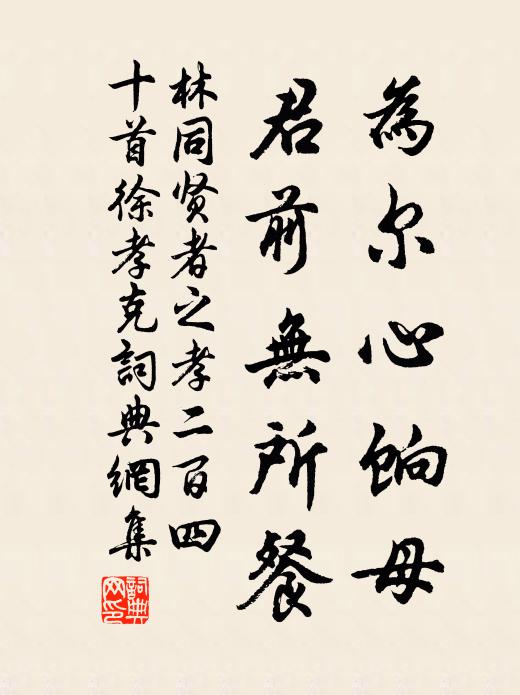 為尔心餉母
君前無所餐
林同贤者之孝二百四
十首徐孝克詞典網集
詞典网印